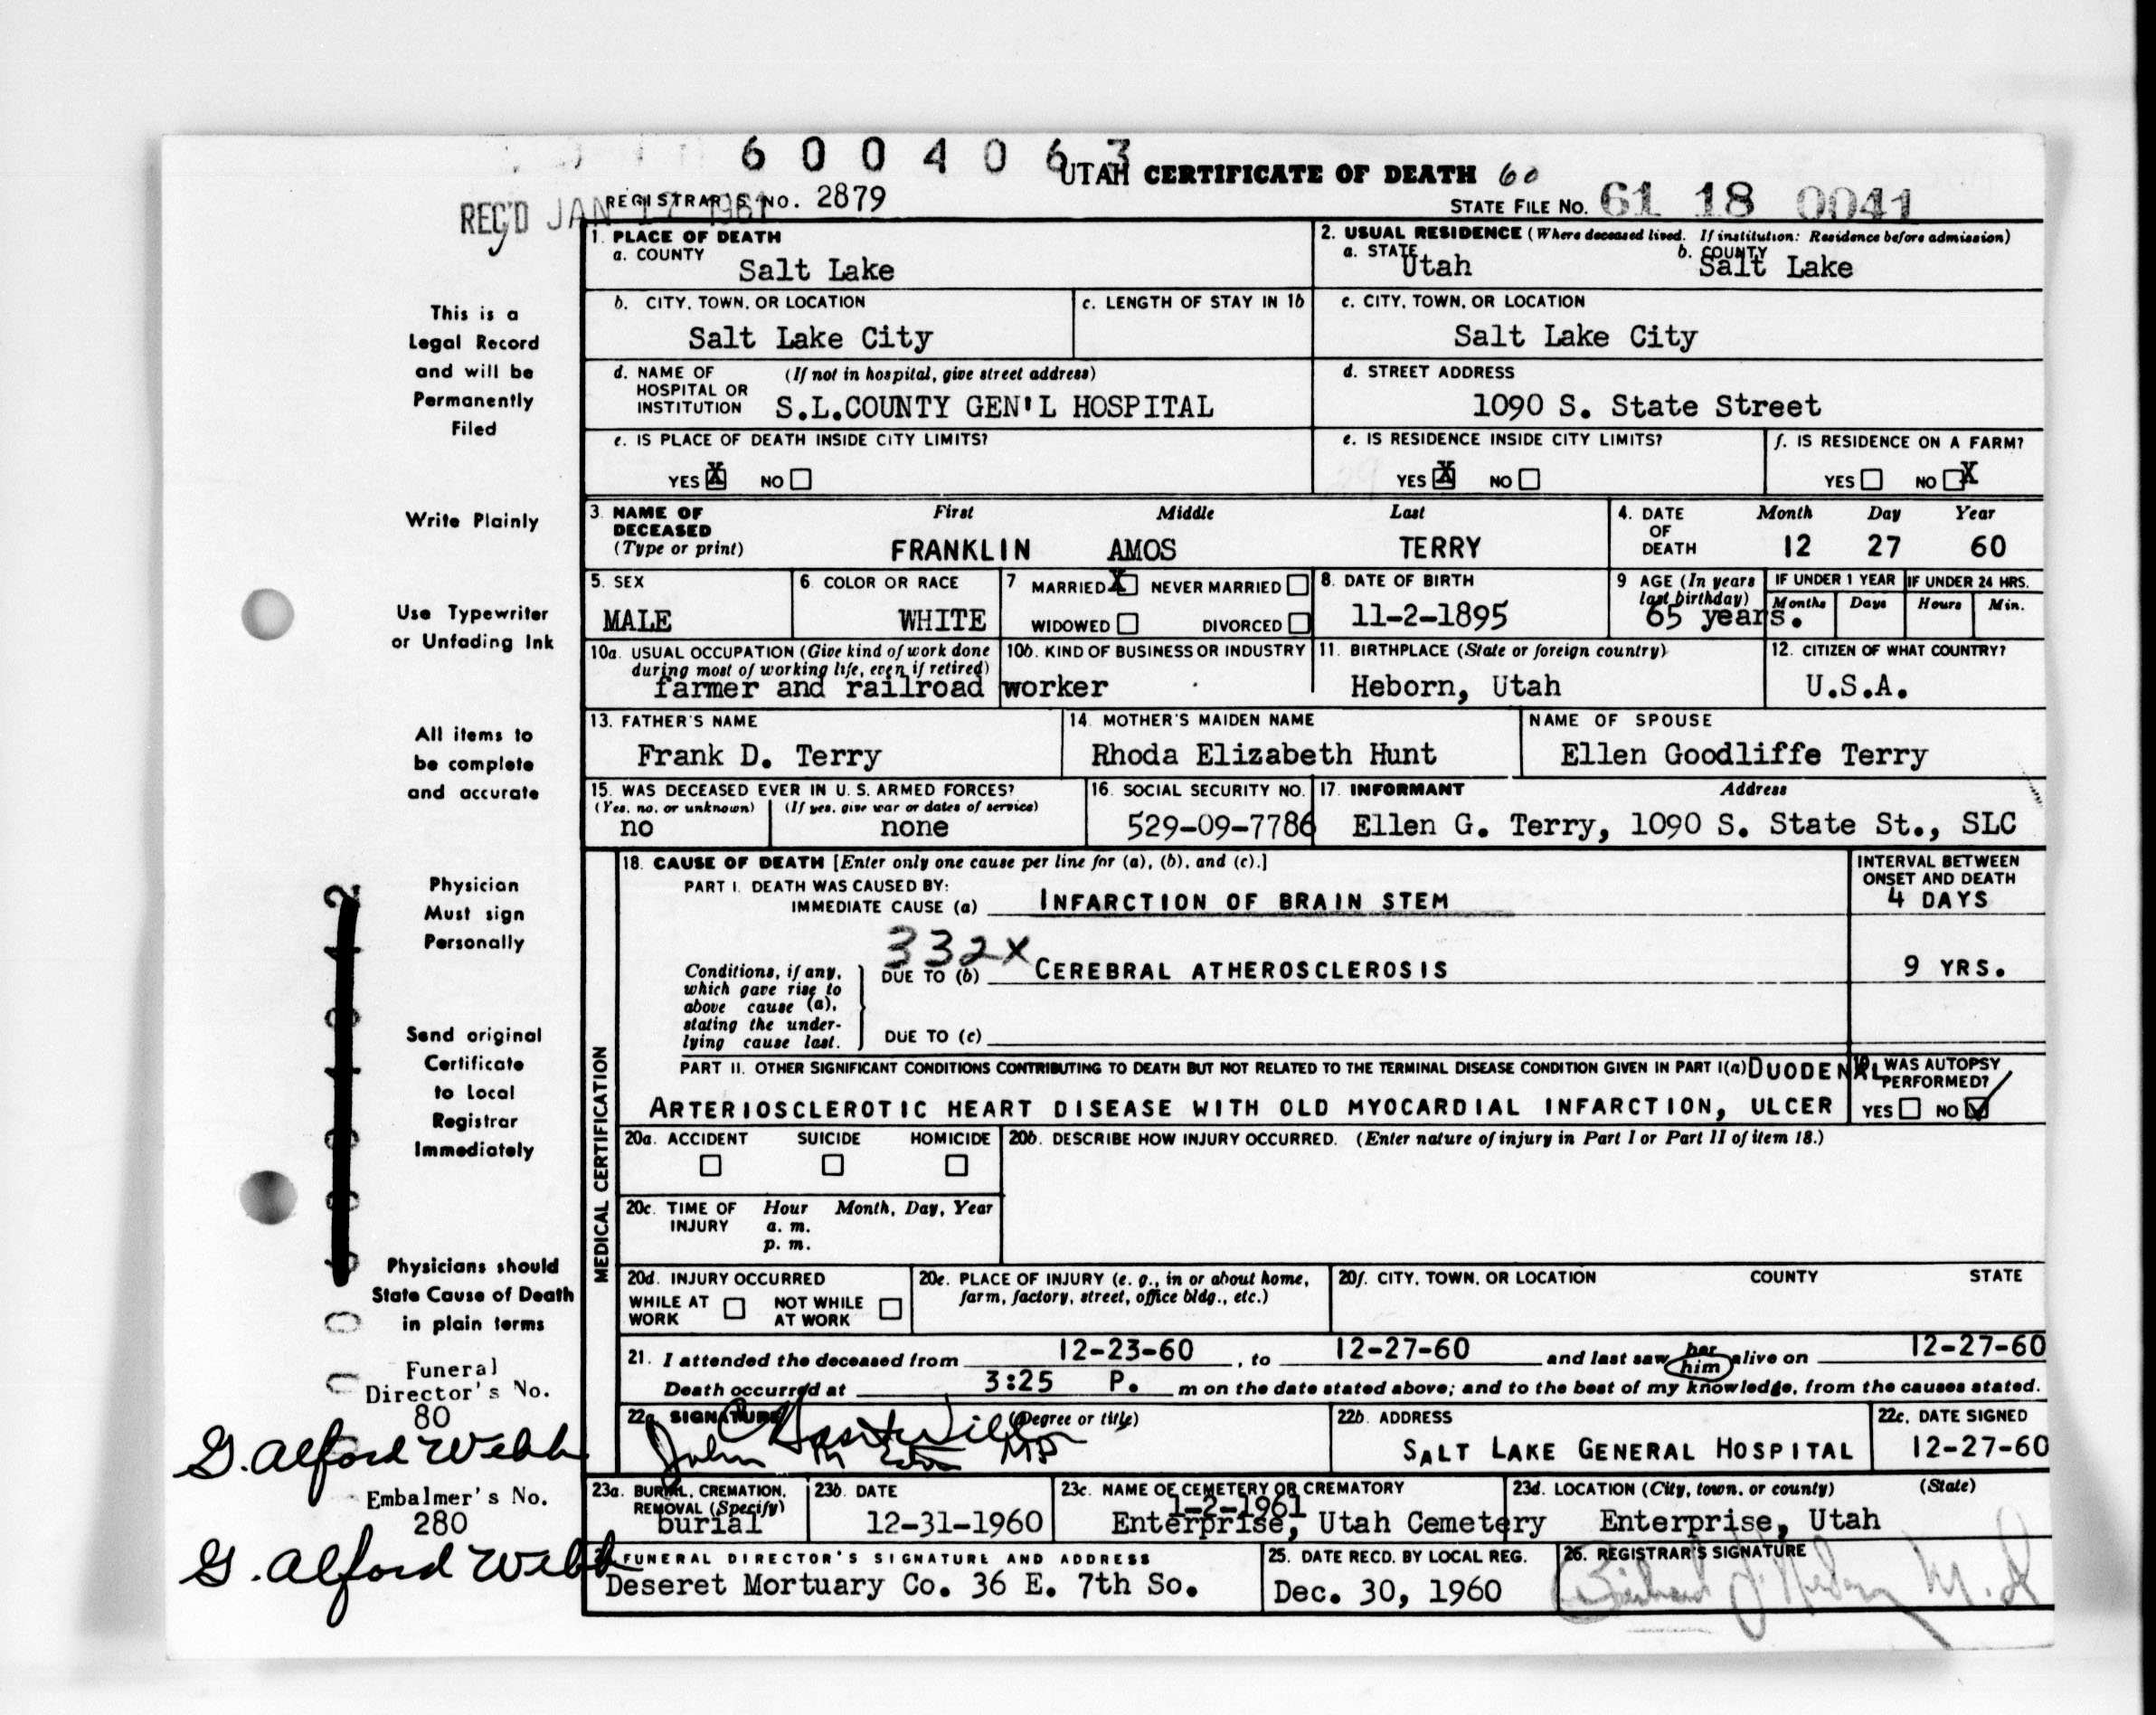 6 0 0 4 0 6 3
UTAH CERTIFICATE OF DEATH 60
REGISTRAR'S NO. 2879
STATE FILE NO. 61 18 0041
REC'D JAN 1961
1. PLACE OF DEATH
a. COUNTY
Salt Lake
2. USUAL RESIDENCE (Where deceased lived. If institution: Residence before admission)
a. STATE Utah
b. COUNTY Salt Lake
b. CITY, TOWN, OR LOCATION
Salt Lake City
c. LENGTH OF STAY IN 1b
c. CITY, TOWN, OR LOCATION
Salt Lake City
d. NAME OF HOSPITAL OR INSTITUTION (If not in hospital, give street address)
S.L.COUNTY GEN'L HOSPITAL
d. STREET ADDRESS
1090 S. State Street
e. IS PLACE OF DEATH INSIDE CITY LIMITS?
YES X NO
e. IS RESIDENCE INSIDE CITY LIMITS?
YES X NO
f. IS RESIDENCE ON A FARM?
YES NO X
3. NAME OF DECEASED (Type or print)
First Middle Last
FRANKLIN AMOS TERRY
4. DATE OF DEATH
Month Day Year
12 27 60
5. SEX
MALE
6. COLOR OR RACE
WHITE
7 MARRIED X NEVER MARRIED
WIDOWED DIVORCED
8. DATE OF BIRTH
11-2-1895
9 AGE (In years last birthday)
65 years.
IF UNDER 1 YEAR
Months Days
IF UNDER 24 HRS.
Hours Min.
10a. USUAL OCCUPATION (Give kind of work done during most of working life, even if retired)
10b. KIND OF BUSINESS OR INDUSTRY
farmer and railroad worker
11. BIRTHPLACE (State or foreign country)
Heborn, Utah
12. CITIZEN OF WHAT COUNTRY?
U.S.A.
13. FATHER'S NAME
Frank D. Terry
14. MOTHER'S MAIDEN NAME
Rhoda Elizabeth Hunt
NAME OF SPOUSE
Ellen Goodliffe Terry
15. WAS DECEASED EVER IN U. S. ARMED FORCES?
(Yes, no, or unknown) (If yes, give war or dates of service)
no none
16. SOCIAL SECURITY NO.
529-09-7786
17. INFORMANT Address
Ellen G. Terry, 1090 S. State St., SLC
MEDICAL CERTIFICATION
18. CAUSE OF DEATH [Enter only one cause per line for (a), (b), and (c).]
INTERVAL BETWEEN ONSET AND DEATH
PART I. DEATH WAS CAUSED BY:
IMMEDIATE CAUSE (a) INFARCTION OF BRAIN STEM
4 DAYS
332X
Conditions, if any, which gave rise to above cause (a), stating the underlying cause last.
DUE TO (b) CEREBRAL ATHEROSCLEROSIS
9 YRS.
DUE TO (c)
PART II. OTHER SIGNIFICANT CONDITIONS CONTRIBUTING TO DEATH BUT NOT RELATED TO THE TERMINAL DISEASE CONDITION GIVEN IN PART I(a) DUODENAL
ARTERIOSCLEROTIC HEART DISEASE WITH OLD MYOCARDIAL INFARCTION, ULCER
19. WAS AUTOPSY PERFORMED?
YES NO
20a. ACCIDENT SUICIDE HOMICIDE
20b. DESCRIBE HOW INJURY OCCURRED. (Enter nature of injury in Part I or Part II of item 18.)
20c. TIME OF INJURY Hour Month, Day, Year
a. m.
p. m.
20d. INJURY OCCURRED
WHILE AT WORK NOT WHILE AT WORK
20e. PLACE OF INJURY (e. g., in or about home, farm, factory, street, office bldg., etc.)
20f. CITY, TOWN, OR LOCATION COUNTY STATE
21. I attended the deceased from 12-23-60, to 12-27-60 and last saw her him alive on 12-27-60
Death occurred at 3:25 P. m on the date stated above; and to the best of my knowledge, from the causes stated.
22a. SIGNATURE (Degree or title)
John MD
22b. ADDRESS
SALT LAKE GENERAL HOSPITAL
22c. DATE SIGNED
12-27-60
23a. BURIAL, CREMATION, REMOVAL (Specify)
burial
23b. DATE
12-31-1960
23c. NAME OF CEMETERY OR CREMATORY
1-2-1961
Enterprise, Utah Cemetery
23d. LOCATION (City, town, or county) (State)
Enterprise, Utah
FUNERAL DIRECTOR'S SIGNATURE AND ADDRESS
Deseret Mortuary Co. 36 E. 7th So.
25. DATE RECD. BY LOCAL REG.
Dec. 30, 1960
26. REGISTRAR'S SIGNATURE
This is a
Legal Record
and will be
Permanently
Filed
Write Plainly
Use Typewriter
or Unfading Ink
All items to
be complete
and accurate
Physician
Must sign
Personally
Send original
Certificate
to Local
Registrar
Immediately
Physicians should
State Cause of Death
in plain terms
Funeral
Director's No.
80
G. Alford Webb
Embalmer's No.
280
G. Alford Webb